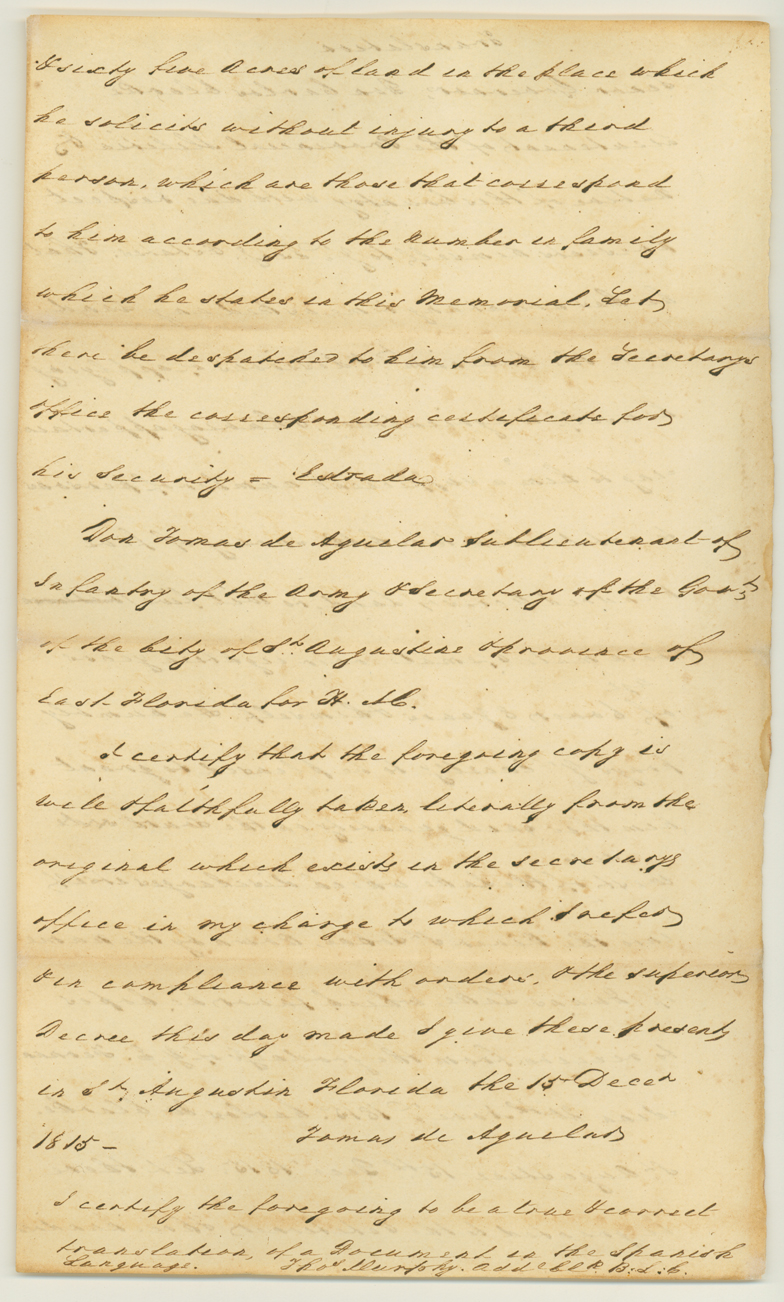 & sixty five Acres of land in the place which
he solicits without injury to a third
person, which are those that correspond
to him according to the number in family
which he states in this Memorial. Let
there be despatched to him from the Secretarys
office the corresponding certificate for
his Security = Estrada
Don Tomas de Aguilar Sublieutenant of
Infantry of the Army & Secretary of the Govt
of the City of St. Augustine & province of
East Florida for H. M.
I certify that the foregoing copy is
well & faithfully taken literally from the
original which exists in the secretarys
office in my charge to which I refer
& in compliance with orders, & the superior
Decree this day made I give these presents
in St. Augustin Florida the 15 Decer
1815 -
Tomas de Aguilar
I certify the foregoing to be a true & correct
translation, of a Document in the Spanish
Language. Thos. Murphy. Add Clk B. L. C.